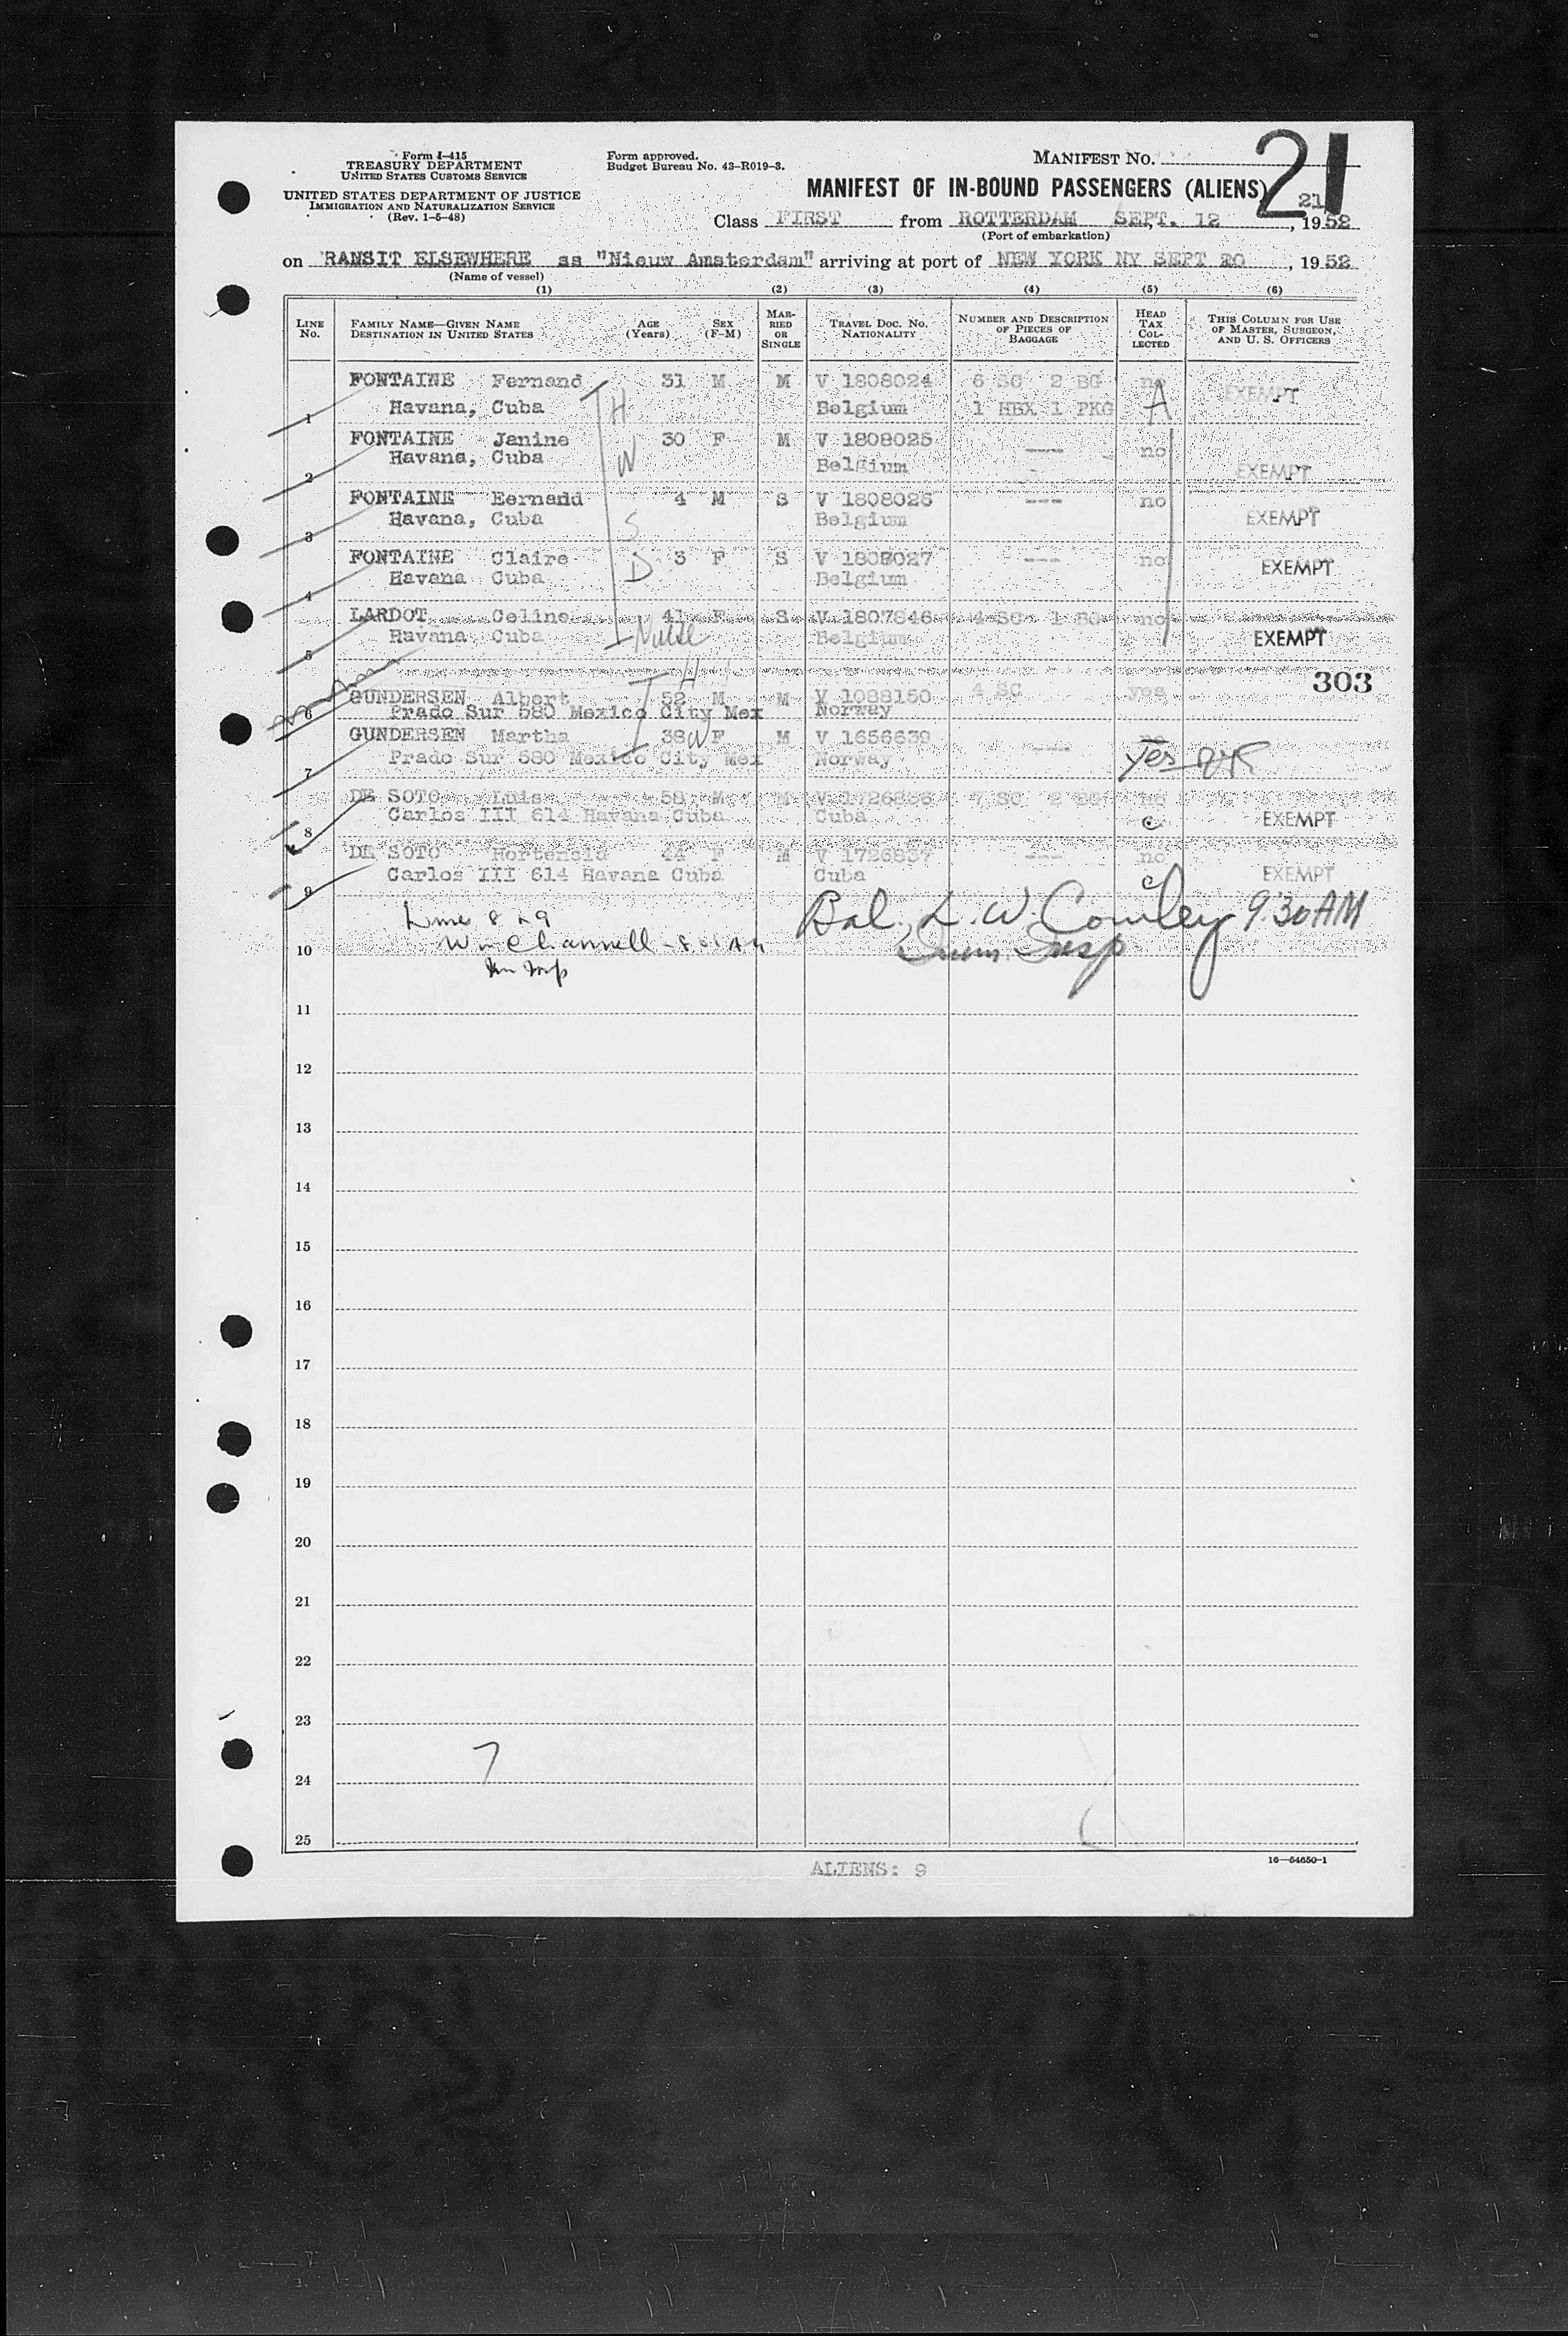 Form I-415
TREASURY DEPARTMENT
UNITED STATES CUSTOMS SERVICE
UNITED STATES DEPARTMENT OF JUSTICE
IMMIGRATION AND NATURALIZATION SERVICE
(Rev. 1-5-48)
Form approved.
Budget Bureau No. 43-R019-3.
MANIFEST NO. 21
MANIFEST OF IN-BOUND PASSENGERS (ALIENS) 21
Class FIRST from ROTTERDAM SEPT. 12, 1952
(Port of embarkation)
on RANSIT ELSEWHERE as "Nieuw Amsterdam" arriving at port of NEW YORK NY SEPT 20, 1952
(Name of vessel)
(1) (2) (3) (4) (5) (6)
LINE No. FAMILY NAME—GIVEN NAME DESTINATION IN UNITED STATES AGE (Years) SEX (F-M) MARRIED OR SINGLE TRAVEL DOC. NO. NATIONALITY NUMBER AND DESCRIPTION OF PIECES OF BAGGAGE HEAD TAX COLLECTED THIS COLUMN FOR USE OF MASTER, SURGEON, AND U. S. OFFICERS
FONTAINE Fernand 31 M M V 1808024 6 SC 2 BG no EXEMPT
1 Havana, Cuba H Belgium 1 HBX 1 PKG A
FONTAINE Janine 30 F M V 1808025 --- no
2 Havana, Cuba W Belgium EXEMPT
FONTAINE Bernard 4 M S V 1808026 --- no
3 Havana, Cuba S Belgium EXEMPT
FONTAINE Claire 3 F S V 1808027 --- no EXEMPT
4 Havana Cuba D Belgium
LARDOT Celine 41 F S V 1807846 4 SC 1 BG no
5 Havana Cuba Nurse Belgium EXEMPT
303
GUNDERSEN Albert H 52 M M V 1088150 4 SC yes
6 Prado Sur 580 Mexico City Mex Norway
GUNDERSEN Martha 38 W F M V 1656639 --- no
7 Prado Sur 580 Mexico City Mex Norway Yes
DE SOTO Luis 58 M M V 1726836 7 SC 2 BG no
8 Carlos III 614 Havana Cuba Cuba c EXEMPT
DE SOTO Hortencia 44 F M V 1726837 --- no
9 Carlos III 614 Havana Cuba Cuba c EXEMPT
Line 8 & 9
Bal. L. W. Cowley 9:30 AM
Wm Channell
Imm Insp
Imm Insp
10
11
12
13
14
15
16
17
18
19
20
21
22
23
7
24
25
ALIENS: 9
16—54650-1